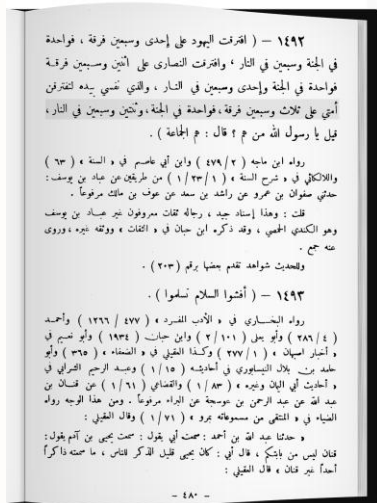 ١٤٩٢ – ( افترقت اليهود على إحدى وسبعين فرقة ، فواحدة
في الجنة وسبعين في النار ، وافترقت النصارى على اثنين وسبعين فرقة
فواحدة في الجنة وإحدى وسبعين في النار ، والذي نفسي بيده لتفترقن
أمتي على ثلاث وسبعين فرقة ، فواحدة في الجنة ، وثنتين وسبعين في النار ،
قيل يا رسول الله من هم ؟ قال : هم الجماعة ) .
رواه ابن ماجه ( ٢ / ٤٧٩ ) وابن أبي عاصم في « السنة » ( ٦٣ )
واللالكائي في « شرح السنة » ( ١ / ٢٣ / ١ ) من طريقين عن عباد بن يوسف :
حدثني صفوان بن عمرو عن راشد بن سعد عن عوف بن مالك مرفوعاً .
قلت : وهذا إسناد جيد ، رجاله ثقات معروفون غير عباد بن يوسف
وهو الكندي الحمصي ، وقد ذكره ابن حبان في « الثقات » ووثقه غيره ، وروى
عنه جمع .
وللحديث شواهد تقدم بعضها برقم ( ٢٠٣ ) .
١٤٩٣ – ( أفشوا السلام تسلموا ) .
رواه البخاري في « الأدب المفرد » ( ٤٧٧ / ١٢٦٦ ) وأحمد
( ٤ / ٢٨٦ ) وأبو يعلى ( ٢ / ١٠١ ) وابن حبان ( ١٩٣٤ ) وأبو نعيم في
« أخبار اصبهان » ( ١ / ٢٧٧ ) وكذا العقيلي في « الضعفاء » ( ٣٦٥ ) وأبو
حامد بن بلال النيسابوري في أحاديثه ( ١٥ / ١ ) وعبد الرحيم الشرابي في
« أحاديث أبي اليمان وغيره » ( ٨٣ / ١ ) والقضاعي ( ٦١ / ١ ) عن قنان بن
عبد الله عن عبد الرحمن بن عوسجة عن البراء مرفوعاً . ومن هذا الوجه رواه
الضياء في « المنتقى من مسموعاته بمرو » ( ٧١ / ١ ) وقال العقيلي :
« حدثنا عبد الله بن أحمد : سمعت أبي يقول : سمعت يحيى بن آدم يقول :
قنان ليس من بابتكم ، قال أبي : كان يحيى قليل الذكر للناس ، ما سمعته ذاكراً
أحداً غير قنان » قال العقيلي :
– ٤٨٠ –